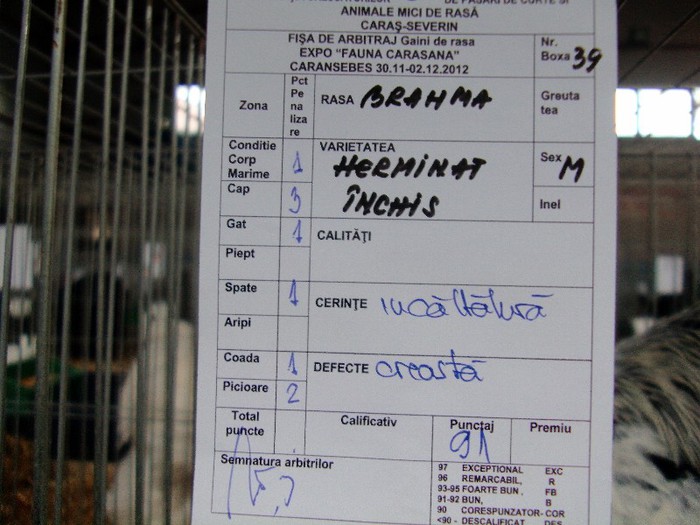 ANIMALE MICI DE RASĂ
CARAŞ-SEVERIN
FIŞA DE ARBITRAJ Gaini de rasa
EXPO "FAUNA CARASANA"
CARANSEBES 30.11-02.12.2012
Nr.
Boxa 39
Zona
Pct
Pe
na
liza
re
RASA BRAHMA
Greuta
tea
Conditie
Corp
Marime
1
VARIETATEA
HERMINAT
ÎNCHIS
Sex M
Cap 3
Inel
Gat 1
CALITĂŢI
Piept
Spate 1
CERINŢE încălţătură
Aripi
Coada 1
DEFECTE creastă
Picioare 2
Total
puncte
Calificativ
Punctaj
91
Premiu
Semnatura arbitrilor
97 EXCEPTIONAL EXC
96 REMARCABIL, R
93-95 FOARTE BUN, FB
91-92 BUN, B
90 CORESPUNZATOR-COR
<90 - DESCALIFICAT DES